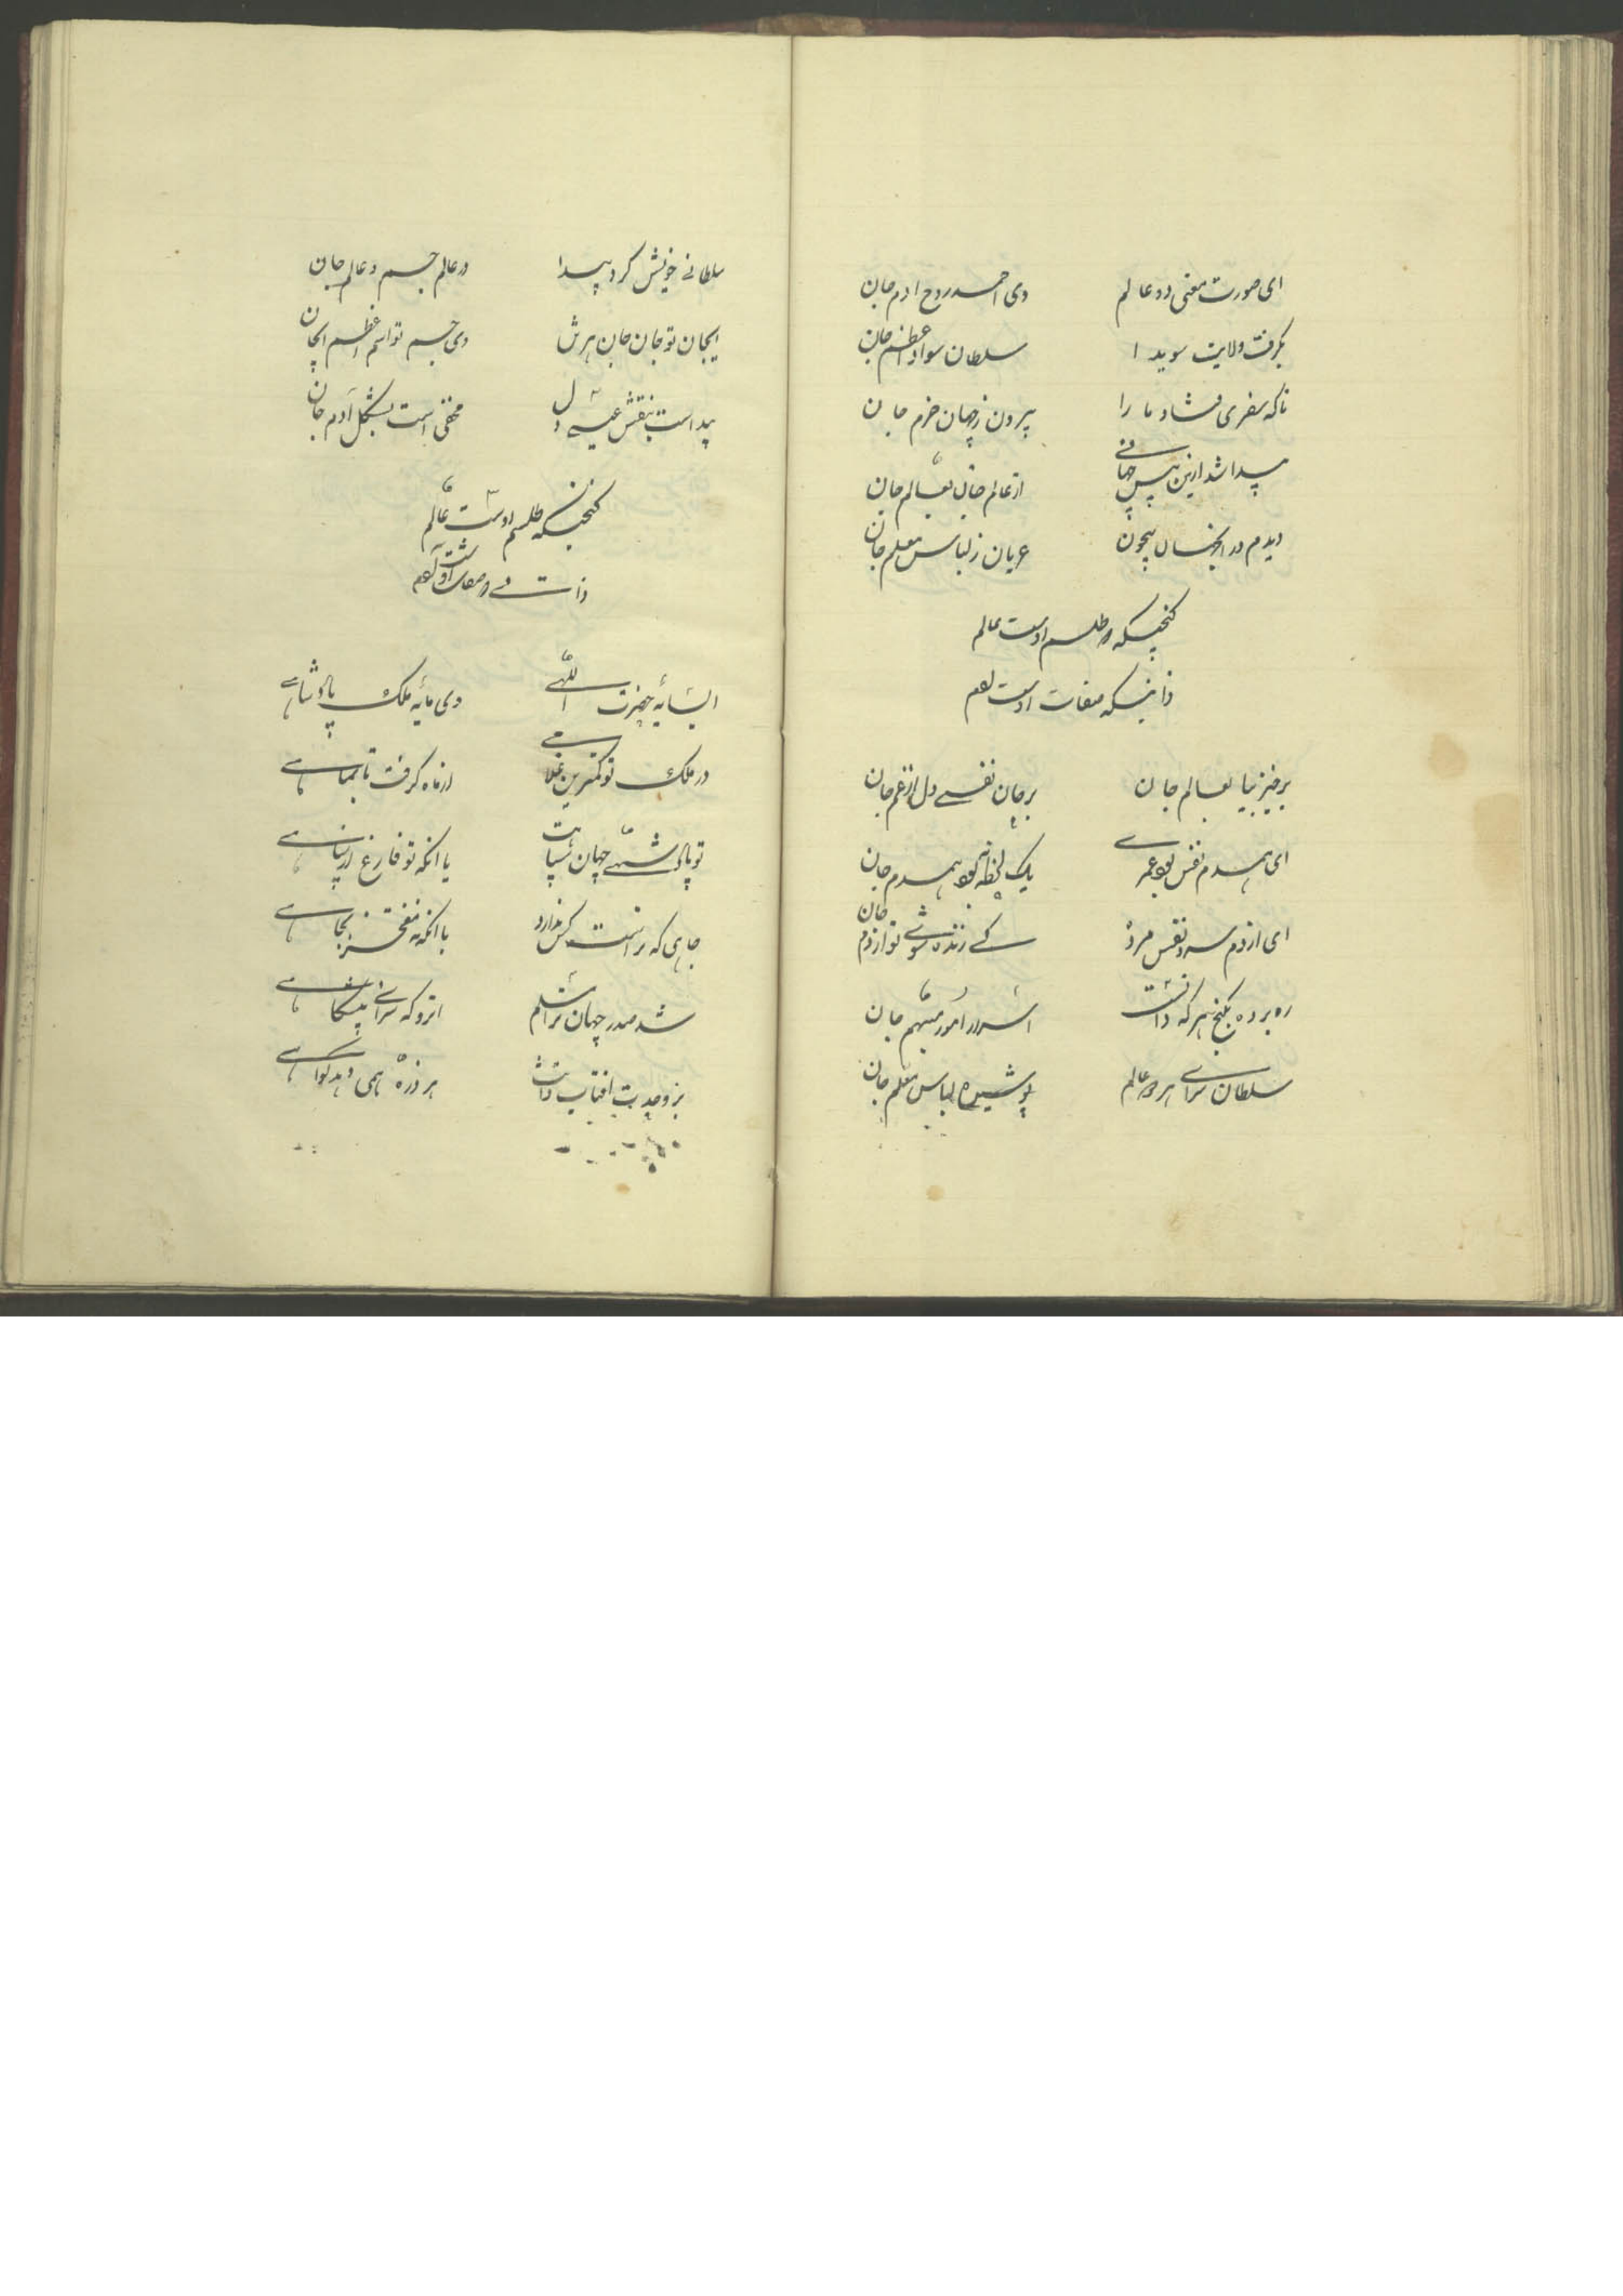 ای صورت معنی دو عالم وی احمد روح ادم جان
بگرفت ولایت سویدا سلطان سواد اعظم جان
ناکه سفری فشاد ما را بیرون زجهان خرم جان
پیدا شد ازین پس جهانی از عالم جان بعالم جان
دیدم در بیچون عریان ز لباس معلم جان
کنجینکه در طلسم اوست عالم
ذاتیکه صفات اوست
برخیز بیا بعالم جان بر جان نفسی دل از غم جان
ای همدم نفس بوده عمری یک لحظه نبوده همدم جان
ای از دم سرد نفس مرده کے زنده شوی تو از دم جان
ره برده بکنج هر که دانست اسرار امور مبهم جان
سلطان سرای هر دو عالم پوشیده لباس معلم جان
سلطانے خویش کرد پیدا در عالم جسم و عالم جان
ایجان تو جان جان وی جسم تو اسم اعظم ایجان
پیداست بنقش مخفی است بشکل آدم جان
کنجینکه طلسم اوست عالم
ذات وے و صفات او
ایسایهٔ حضرت اللهی وی مایهٔ ملک پادشاهے
در ملک تو کمترین غلامے از ماه کرفت تا بماهے
تو پادشهے جهان سپاهت یا انکه تو فارغ از سپاهے
جاهی که تراست کس ندارد با انکه نه مفتخر بجاهے
شد صدر جهان ترا مسلم انرو که سزاے پیشکاهے
بر وحدت افتاب ذاتت هر ذره همی دهد کواهے